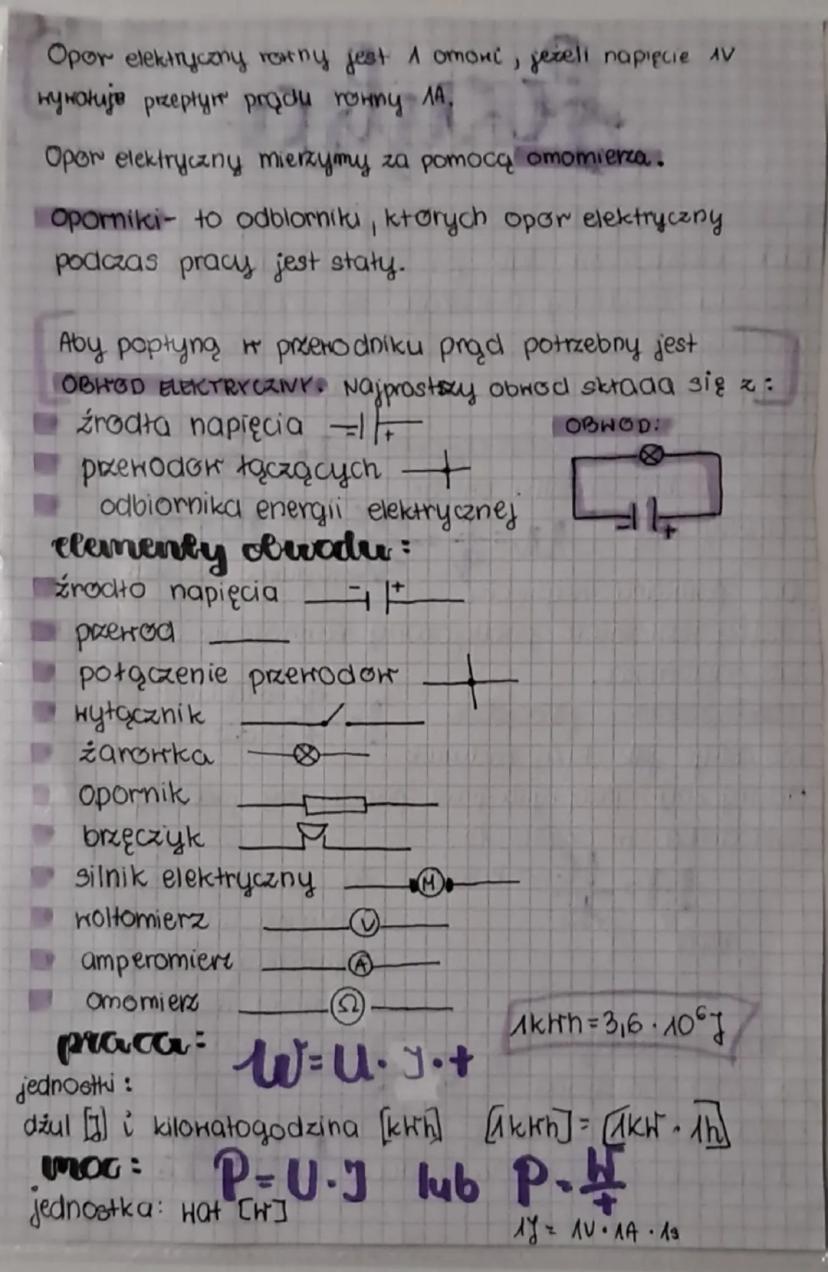 Opor elektryczny rowny jest 1 omowi, jeżeli napięcie 1V
wywołuje przepływ prądu rowny 1A.
Opor elektryczny mierzymy za pomocą omomierza.
Oporniki- to odbiorniki, ktorych opor elektryczny
podczas pracy jest stały.
Aby popłyną w przewodniku prąd potrzebny jest
OBWOD ELEKTRYCZNY. Najprostszy obwod składa się z:
źrodła napięcia - +
OBWOD:
przewodow łączących
odbiornika energii elektrycznej
- +
elementy obwodu:
źrodło napięcia - +
przewod
połączenie przewodow
wyłącznik
żarowka
opornik
brzęczyk
silnik elektryczny M
woltomierz V
amperomierz A
omomierz Ω
1kWh = 3,6 · 10⁶J
praca: W = U · J · t
jednostki:
dżul [J] i kilowatogodzina [kWh] [1kWh] = [1kW · 1h]
moc: P = U · J lub P = W/t
jednostka: wat [W]
1J = 1V · 1A · 1s